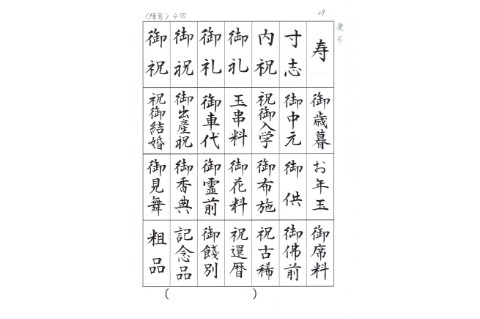 慶弔
寿
寸志
内祝
御礼
御礼
御祝
御祝
御歳暮
御中元
祝御入学
玉串料
御車代
御出産祝
祝御結婚
お年玉
御供
御布施
御花料
御霊前
御香典
御見舞
御席料
御佛前
祝古稀
祝還暦
御餞別
記念品
粗品
(　　　)